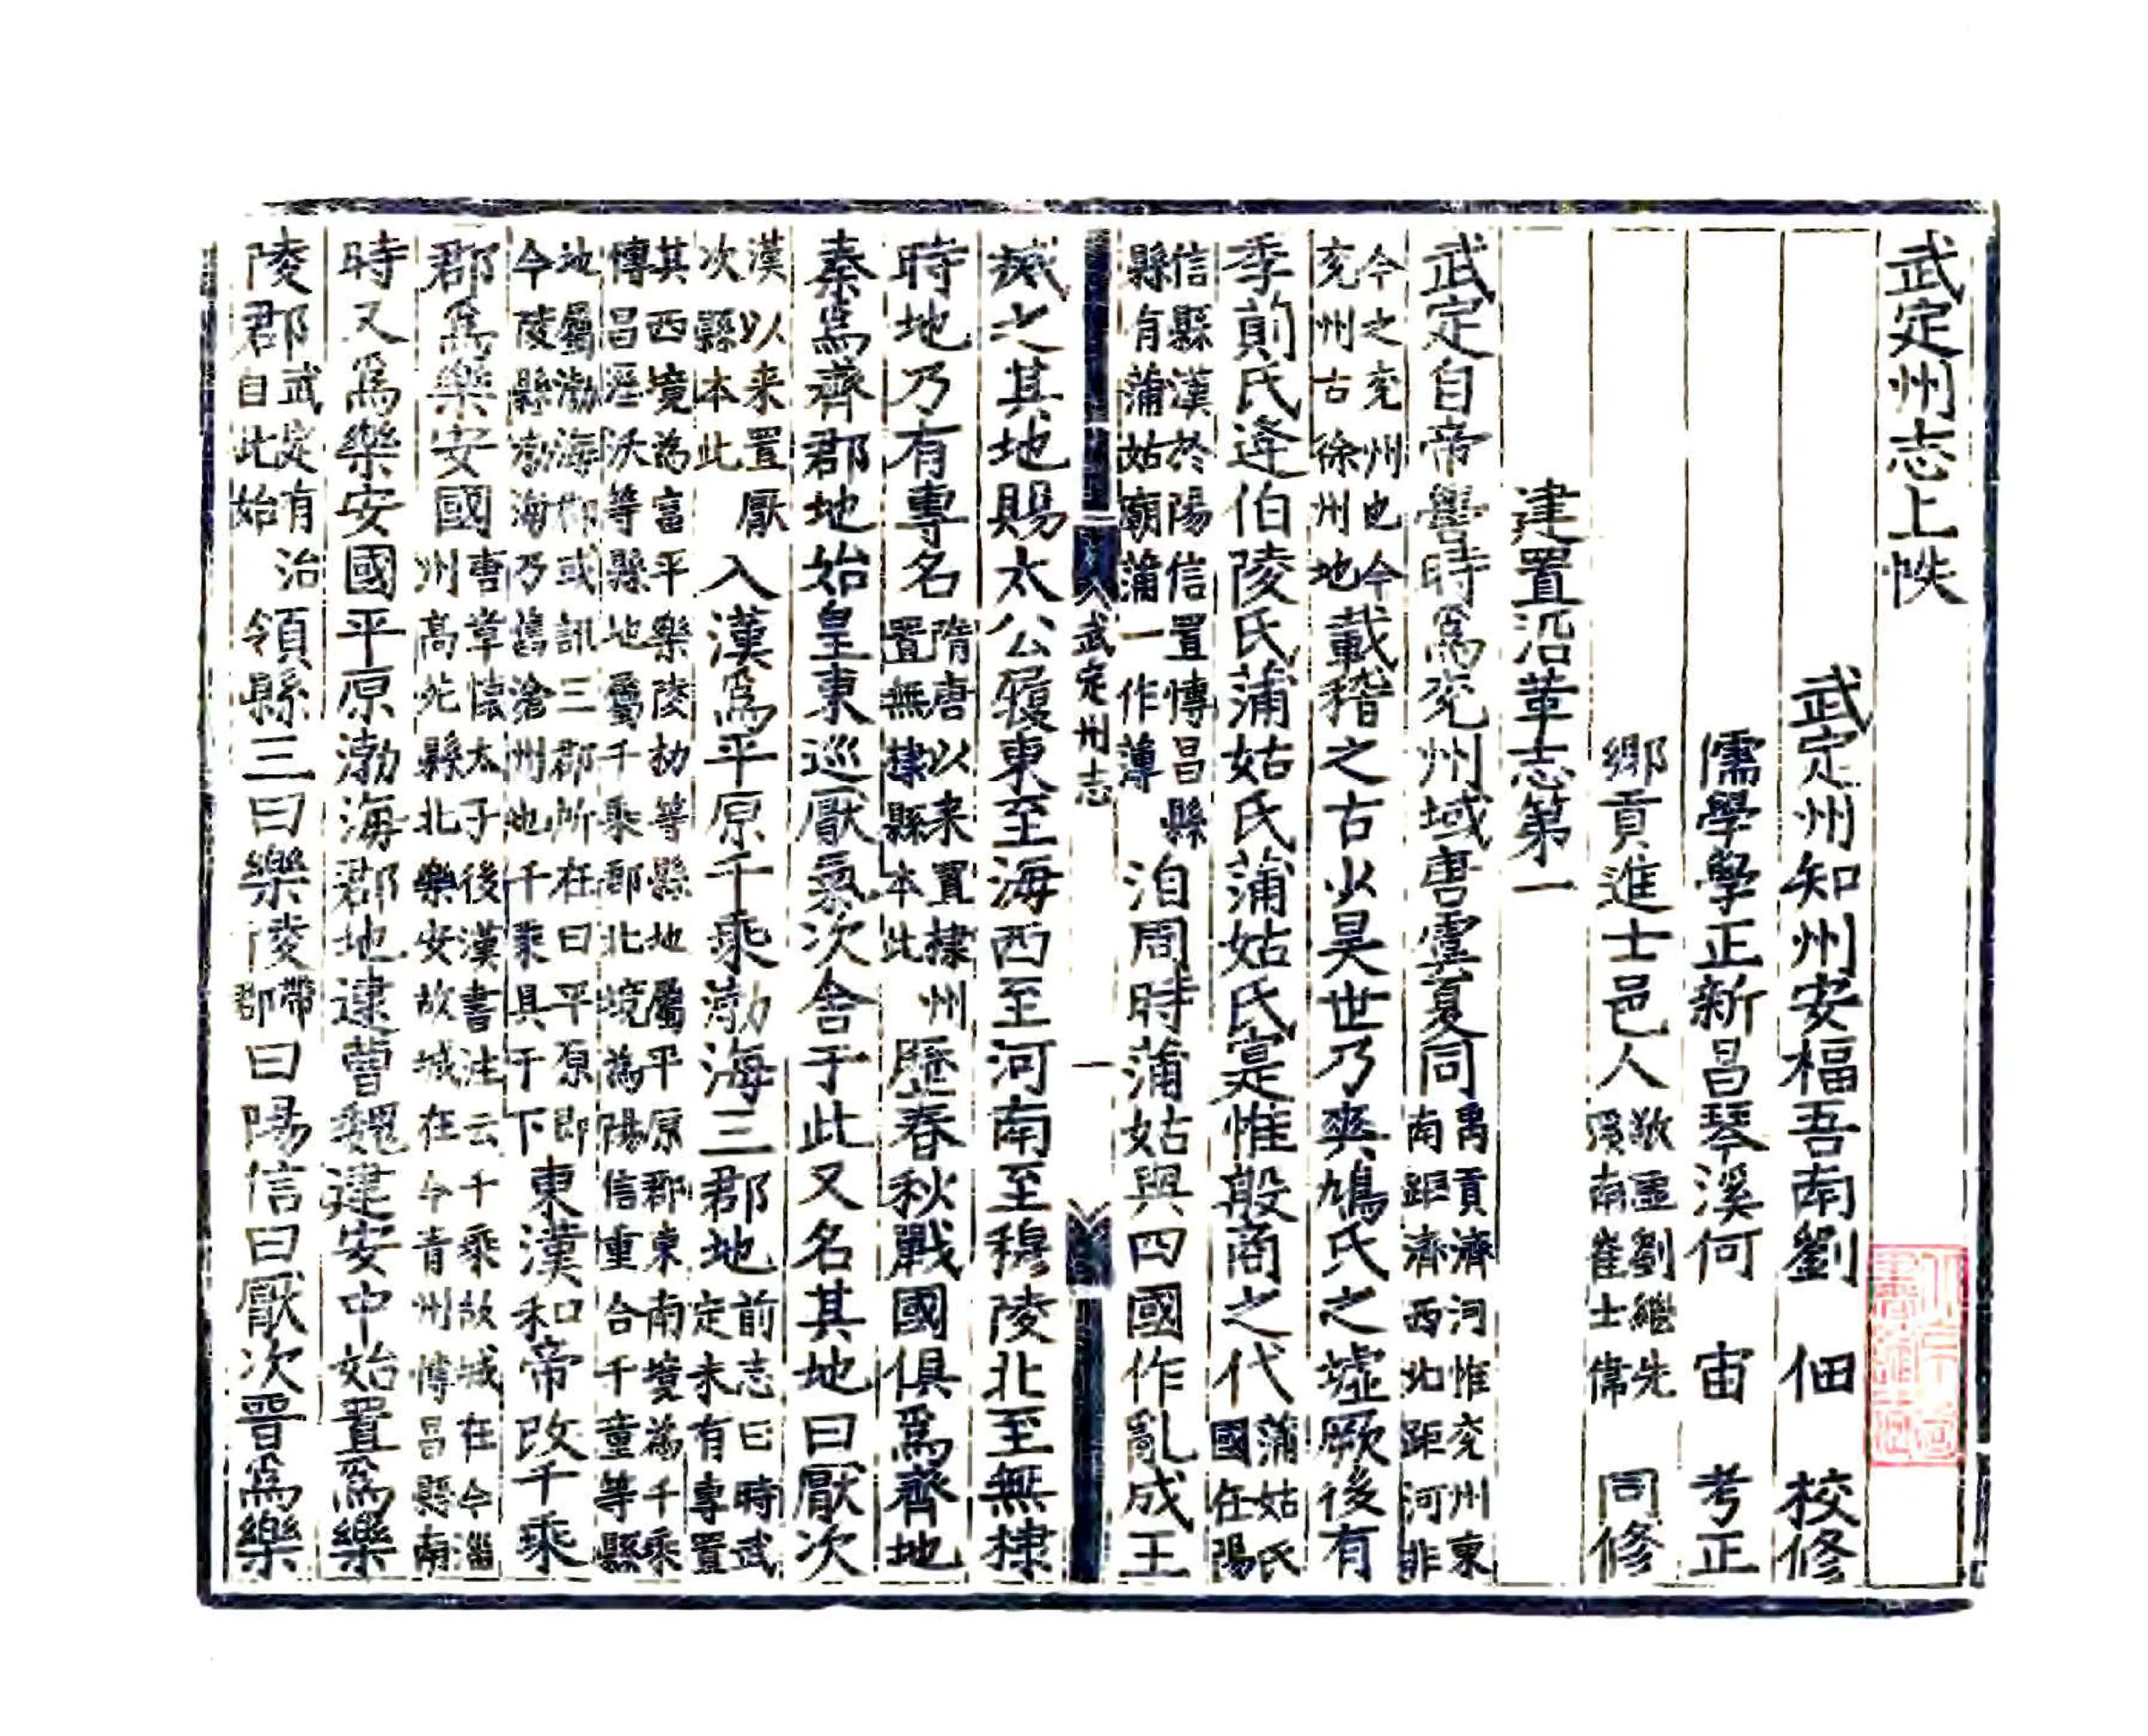 武定州志上帙
武定州知州安福吾南劉 佃 校修
儒學學正新昌琴溪何 宙 考正
鄉貢進士邑人敬虛劉繼先濱南崔士偉 同修
建置沿革志第一
武定自帝嚳時爲兖州域唐虞夏同禹貢濟河惟兖州東南距濟西北距河非
今之兖州也今兖州古徐州地載稽之古少昊世乃爽鳩氏之墟厥後有
季萴氏逄伯陵氏蒲姑氏蒲姑氏寔惟殷商之代蒲姑氏國在陽
信縣漢於陽信置博昌縣縣有蒲姑廟蒲一作薄洎周時蒲姑與四國作亂成王
武定州志 一
滅之其地賜太公履東至海西至河南至穆陵北至無棣
時地乃有專名隋唐以来置棣州置無棣縣本此歷春秋戰國俱爲齊地
秦爲齊郡地始皇東巡厭氣次舍于此又名其地曰厭次
漢以来置厭次縣本此入漢爲平原千乘渤海三郡地前志曰時武定未有專置
其西境為富平樂陵朸等縣地屬平原郡東南境為千乘博昌溼沃等縣地屬千乘郡北境為陽信重合千童等縣
地屬渤海郡或訊三郡所在曰平原即今陵縣渤海乃舊滄州也千乘具于下東漢和帝改千乘
郡爲樂安國唐章懷太子後漢書注云千乘故城在今淄州高苑縣北樂安故城在今青州博昌縣南
時又爲樂安國平原渤海郡地逮曹魏建安中始置爲樂
陵郡武定有治自此始領縣三曰樂陵帶郡曰陽信曰厭次晉爲樂